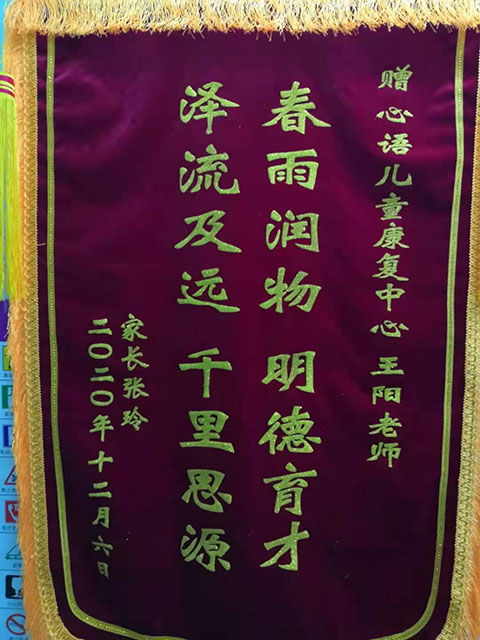 赠心语儿童康复中心王阳老师
春雨润物 明德育才
泽流及远 千里思源
家长张玲
二〇二〇年十二月六日